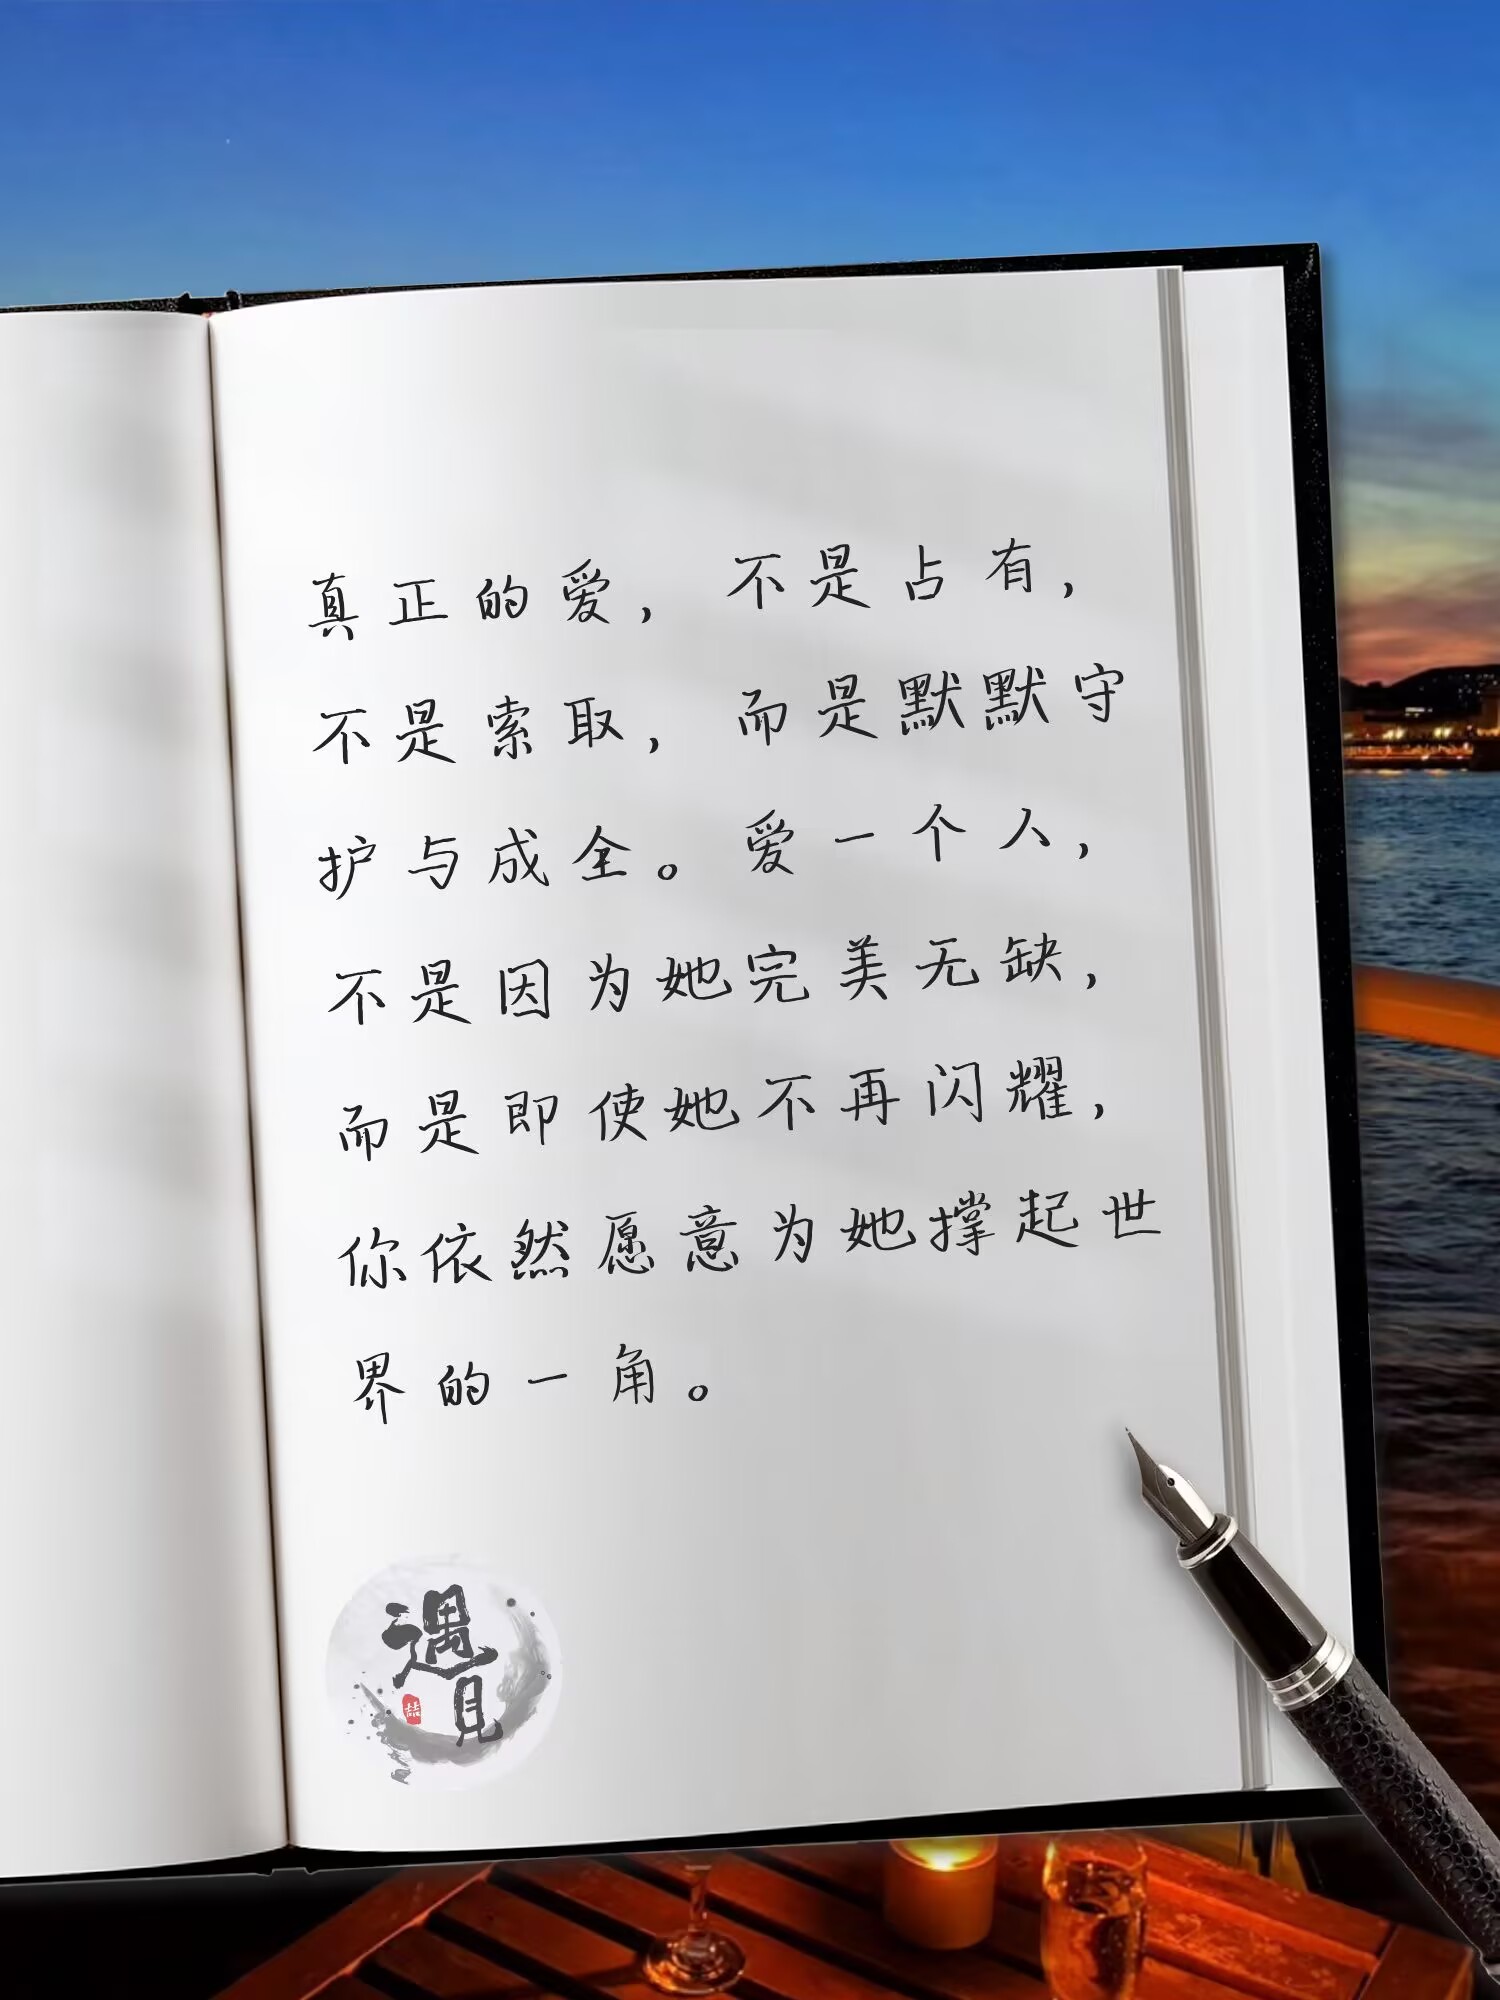 真正的爱，不是占有，
不是索取，而是默默守
护与成全。爱一个人，
不是因为她完美无缺，
而是即使她不再闪耀，
你依然愿意为她撑起世
界的一角。
遇见